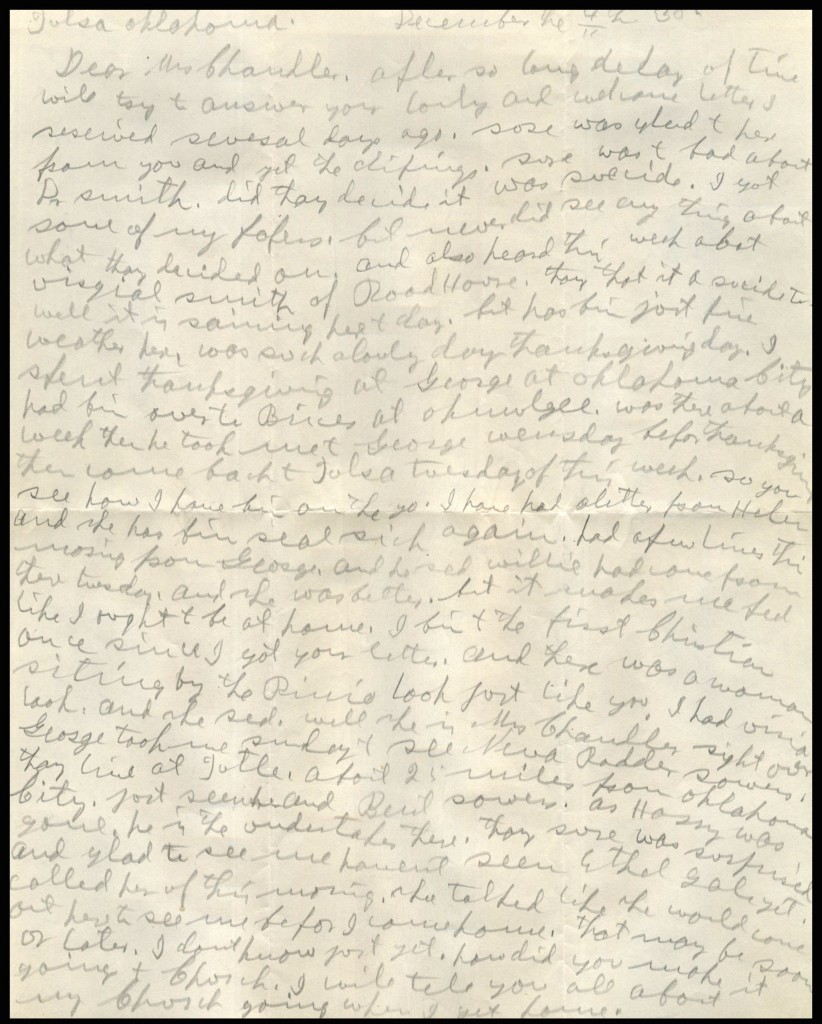 Tulsa oklahoma. December the 4th 30
Dear Mrs Chandler. after so long delay of time
will try to answer your lovly and welcome letter I
reserived several days ago. sore was glad t her
from you and get the clipings. sore was t bad about
Dr smith. did thay decide it was sucide. I got
some of my popers. but never did see any thing about
what thay decided on. and also heard this week abot
virgial smith of RoadHouse. thay that it a sucide to.
well it is raining here t day. but has bin just fine
weather here, was such a lovly day thanksgiving day. I
spent thanksgiving at George at oklahoma City
had bin over to Brices at okmulgee. was there about a
week then he took me t George wensday befor thanksgiving
then come back t Tulsa tuesday of this week. so you
see how I have bin on the go. I have had a letter from Helen
and she has bin real sick again. had a few lines this
morning from George. and he sed willie had come from
there tuesday. and she was better. but it makes me feel
like I ought t be at home. I bin t the first Christian
once since I got your letter. and there was a woman
siting by the look just like you. I had
look. and she sed. well she is Mrs Chandler right over
George took me sunday t see Neva Rodder sowers.
thay live at Tutle. about 25 miles from oklahoma
City. just seen he and Beul sowers. as Harry was
gone. he is the undertaker there. thay sore was surprised
and glad to see me havent seen Ethel Gale yet.
called her of this morning. she talked like she would come
out here to see me befor I come home. that may be soon
or later. I dont know just yet. how did you make it
going t Chorch. I will tell you all about it
my Chorch going when I get home.